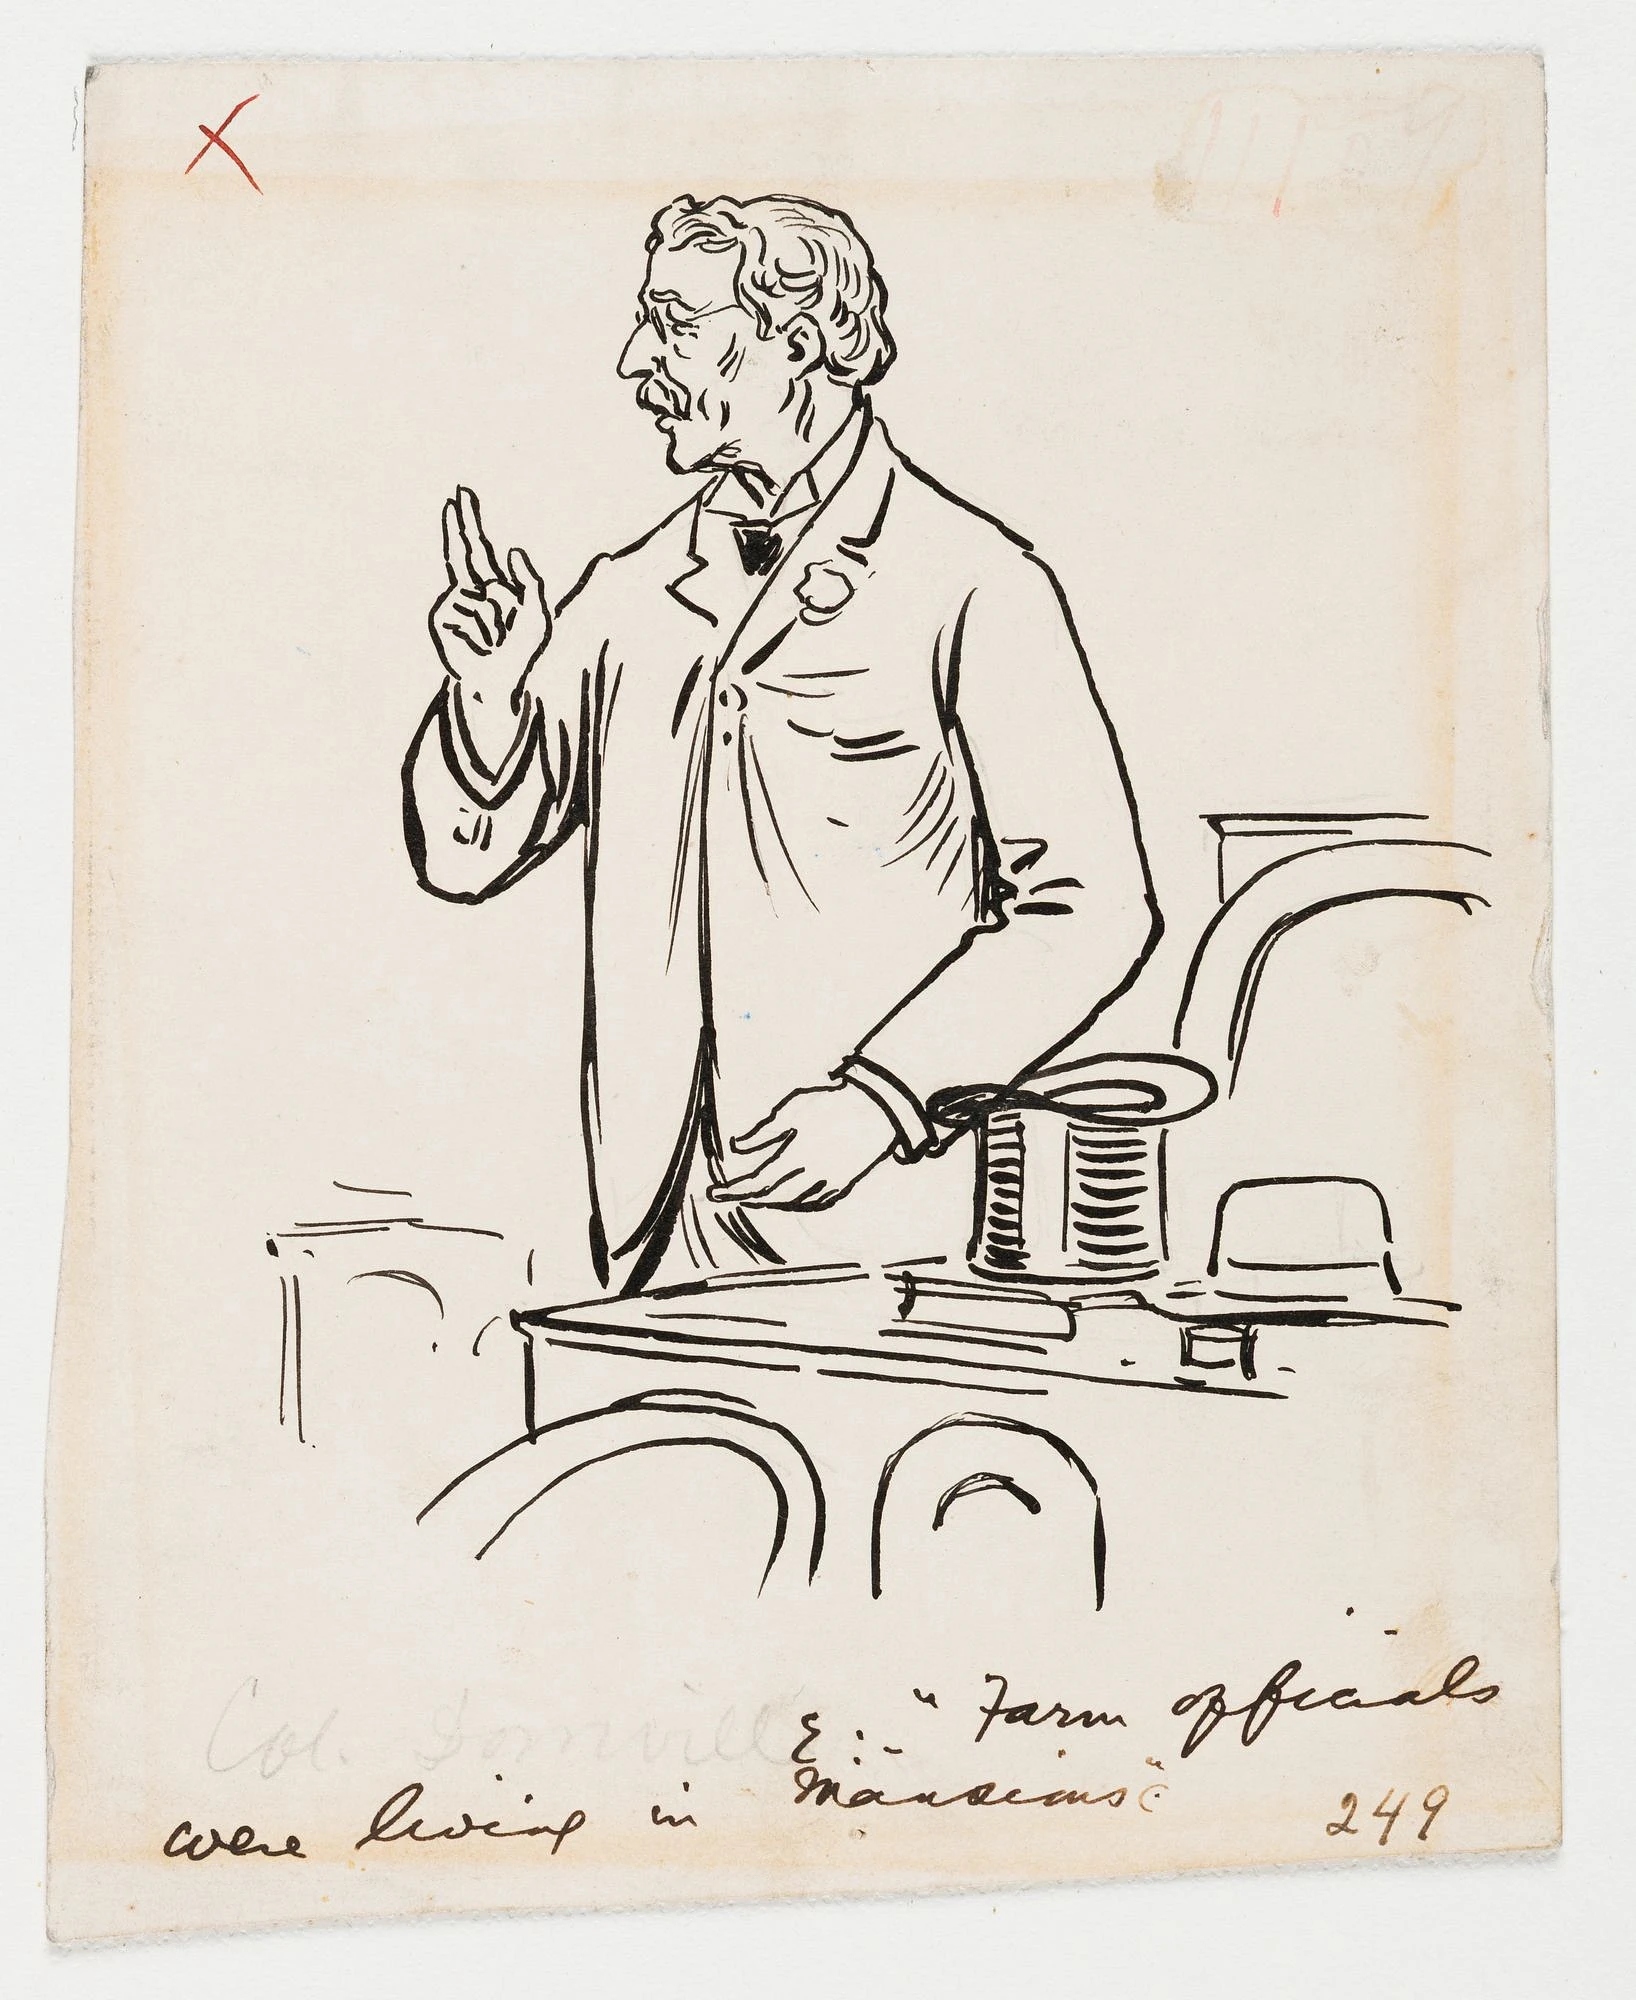 Col. Domville
E:- " Farm officials
were living in Mansions"
249